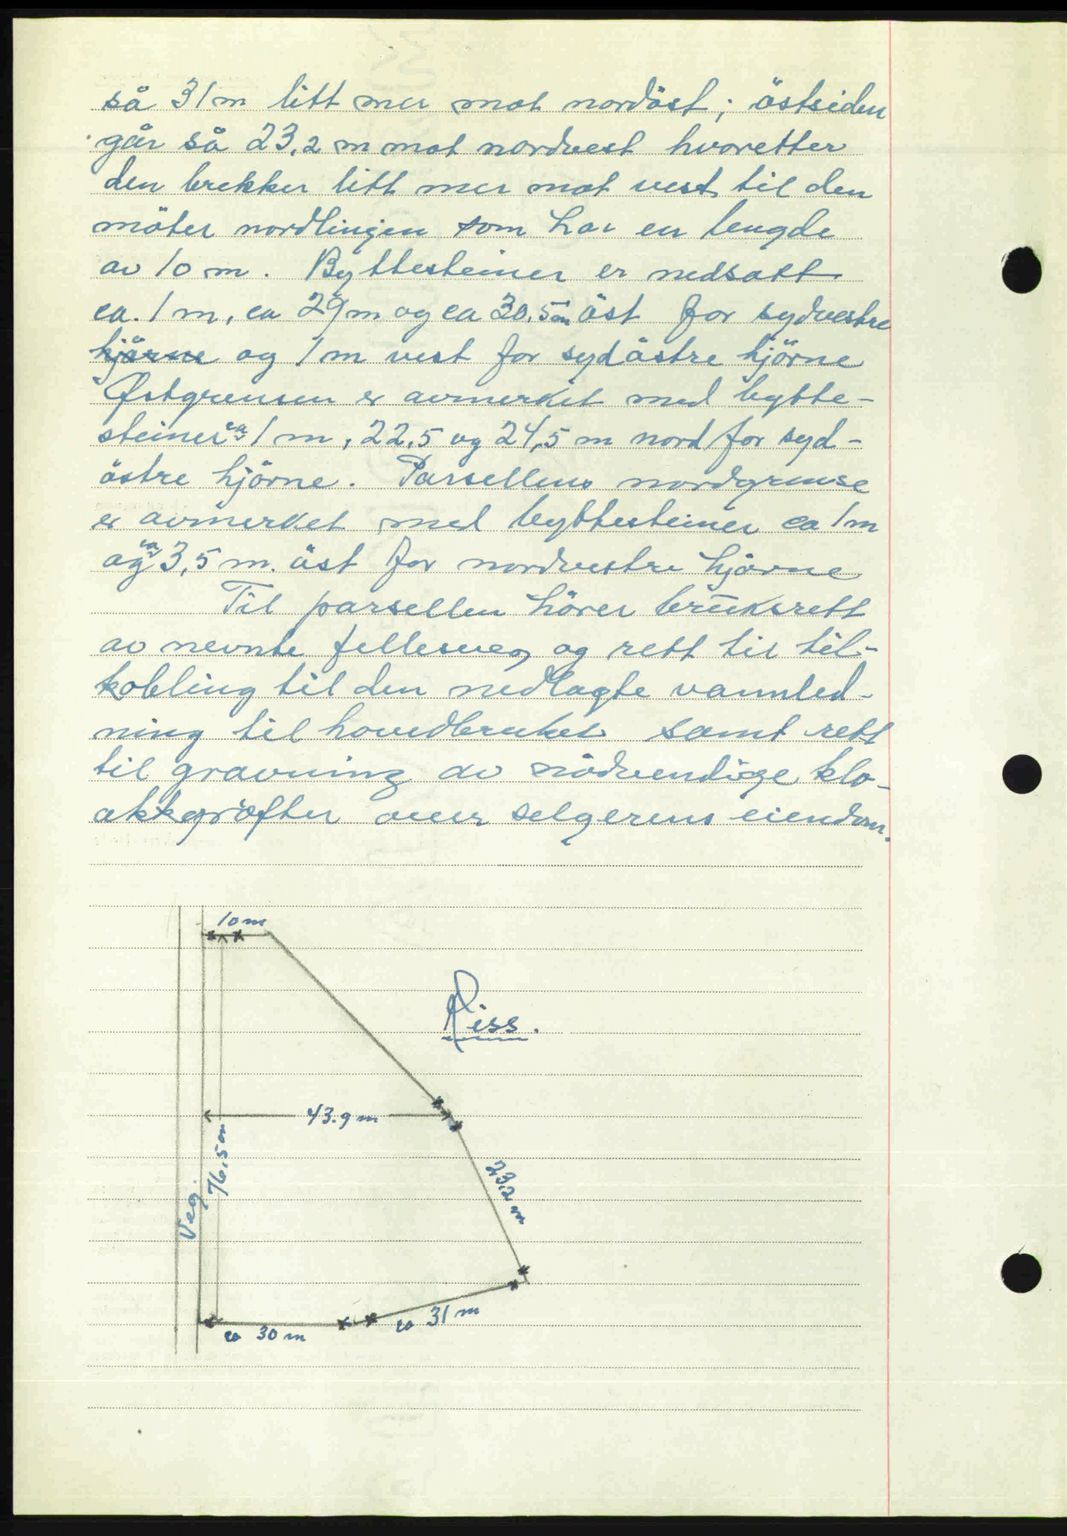 så 31 m litt mer mot nordöst; östsiden
går så 23,2 m mot nordvest hvoretter
den brekker litt mer mot vest til den
möter nordlinjen som har en lengde
av 10 m. Byttesteiner er nedsatt
ca. 1 m, ca 29 m og ca 30,5 m öst for sydvestre
hjörne og 1 m vest for sydöstre hjörne
Østgrensen er avmerket med bytte-
steiner ca 1 m, 22,5 og 24,5 m nord for syd-
östre hjörne. Parsellens nordgrense
er avmerket med byttesteiner ca 1 m
og ca 3,5 m. öst for nordvestre hjörne
Til parsellen hörer bruksrett
av nevnte fellesveg og rett til til-
kobling til den nedlagte vannled-
ning til hovedbruket samt rett
til gravning av nödvendige klo-
akkgröfter over selgerens eiendom.
10 m
Riss.
43.9 m
76,5 m
Veg.
23,2 m
ca 31 m
ca 30 m